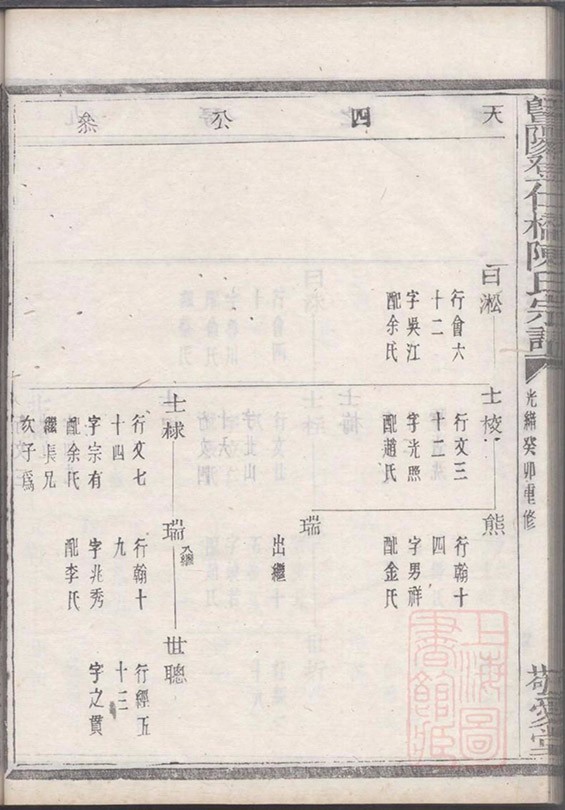 暨陽登仕橋陳氏宗譜
光緒癸卯重修
敬愛堂
天四公糸
曰淞
行會六
十二
字吳江
配余氏
士棱
行文三
十二
字光照
配趙氏
熊
行翰十
四
字男祥
配金氏
瑞
出繼
士祿
行文七
十四
字宗有
配余氏
繼長兄
次子爲
瑞
入繼
行翰十
九
字兆秀
配李氏
世聰
行經五
十三
字之貫
上海圖書館藏